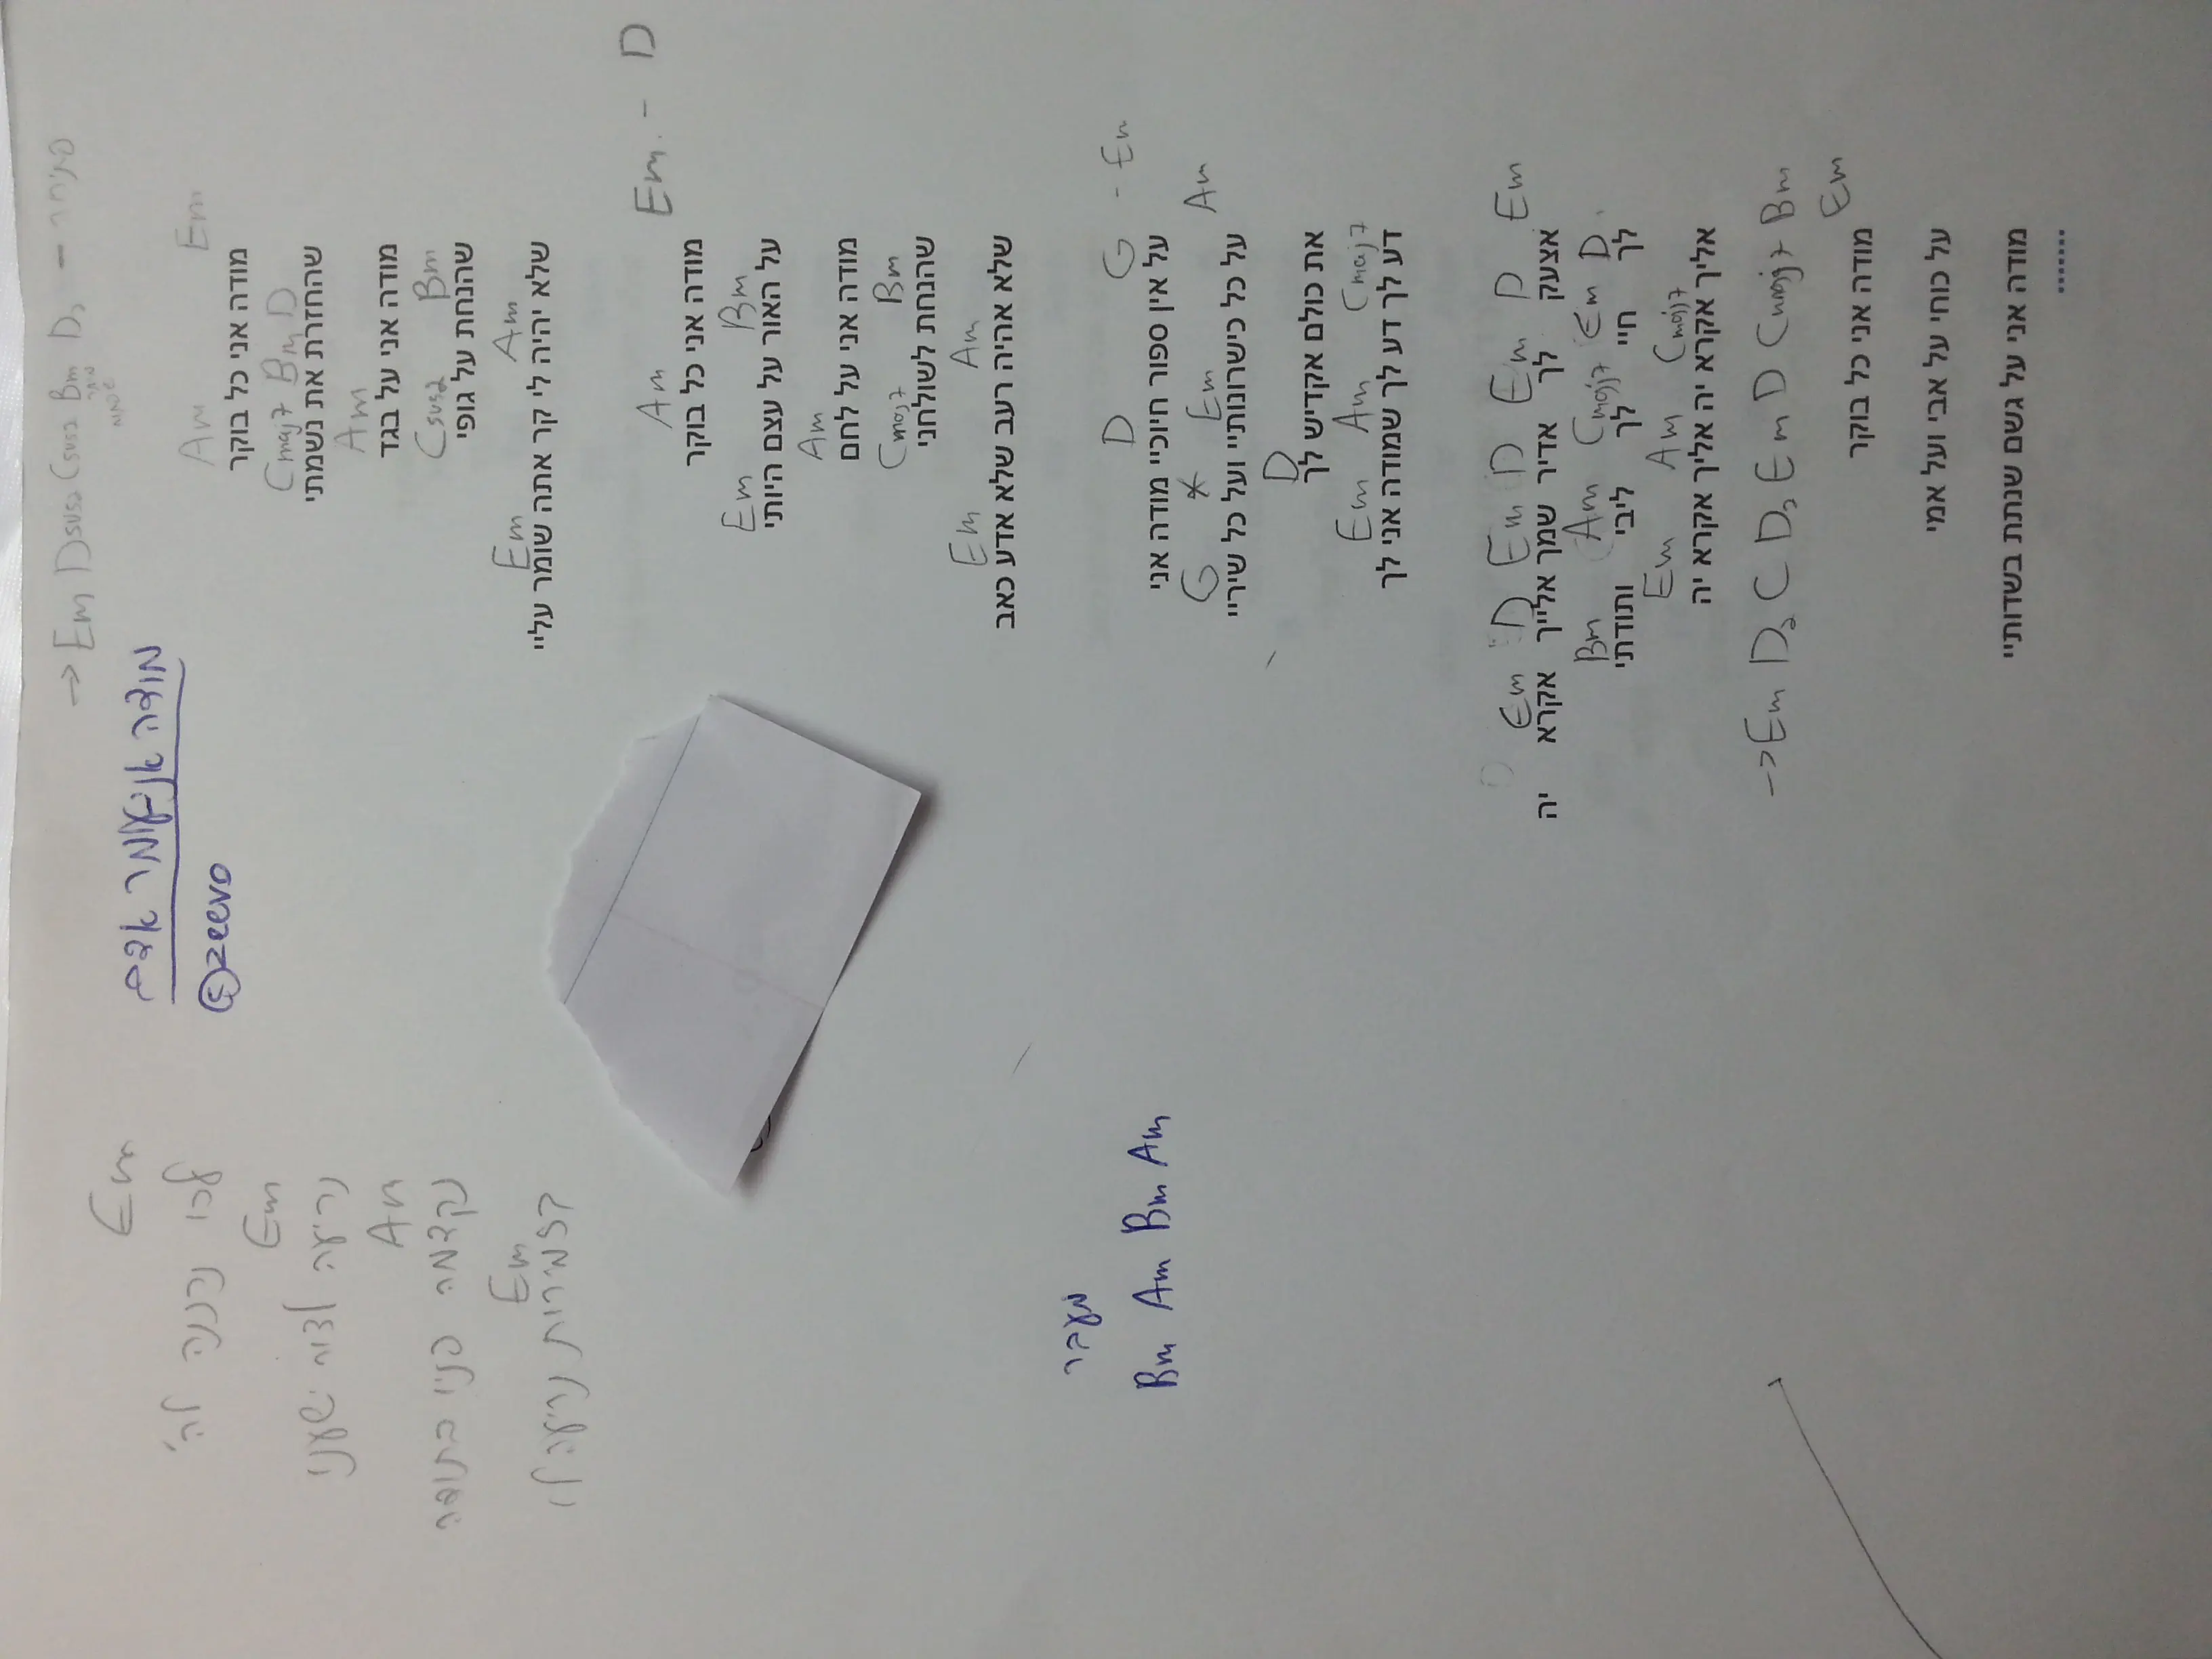 פתיחה - → Em Dsus2 Csus2 Bm D
מודה אני
© zeevo
Am Em
מודה אני כל בוקר
Cmaj7 Bm D
שהחזרת את נשמתי
Am
מודה אני על בגד
Csus2 Bm
שהנחת על גופי
Em Am
שלא יהיה לי קר אתה שומר עליי
Am Em - D
מודה אני כל בוקר
Em Bm
על האור על עצם היותי
Am
מודה אני על לחם
Cmaj7 Bm
שהנחת לשולחני
Em Am
שלא אהיה רעב שלא אדע כאב
D G - Em
על אין ספור חיוכיי מודה אני
G * Em Am
על כל כישרונותיי ועל כל שיריי
D
את כולם אקדיש לך
Em Am Cmaj7
דע לך דע לך שמודה אני לך
Em D Em D Em D Em
אצעק לך אדיר שמך אלייך אקרא יה
Bm Am Cmaj7 Em D
לך חיי לך ליבי ותודתי
Em Am Cmaj7
אליך אקרא יה אליך אקרא יה
→ Em D C D Em D Cmaj7 Bm
Em
מודה אני כל בוקר
על כוחי על אבי ועל אמי
מודה אני על גשם שנתת בשדותיי
......
Em
לכו נרננה לה'
Em
נריעה לצור ישענו
Am
נקדמה פניו בתודה
Em
בזמירות נריע לו
מעבר
Bm Am Bm Am